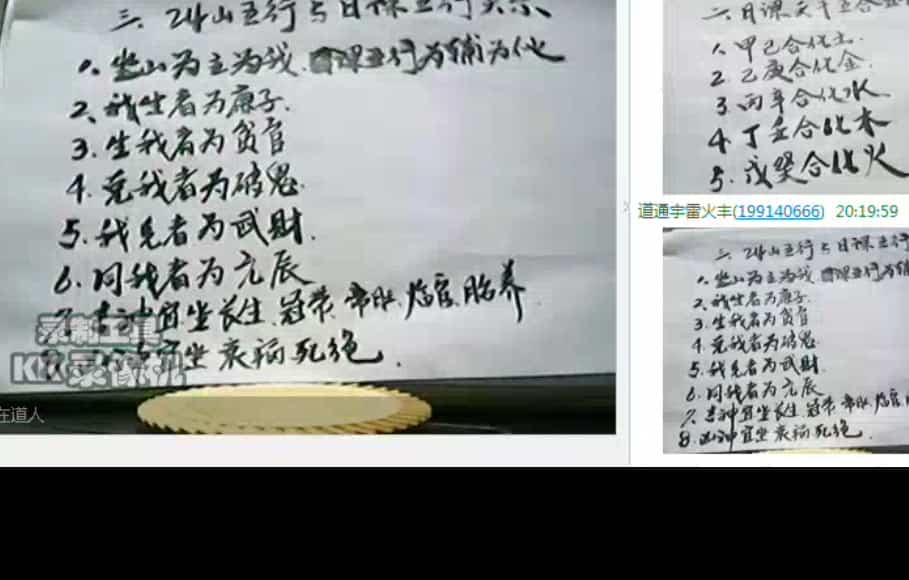 三、24山五行与日课五行关系
1. 坐山为主为我 日课五行为辅为他
2、我生者为廉子.
3. 生我者为贪官
4. 克我者为破鬼.
5. 我克者为武财.
6. 同我者为元辰
7. 吉神宜坐长生.冠带.帝旺.临官.胎养.
宜坐衰病死绝.
在道人
二、日课天干五合
1、甲己合化土.
2. 乙庚合化金.
3. 丙辛合化水
4. 丁壬合化木
5. 戊癸合化火
道通宇雷火丰(199140666) 20:19:59
三、24山五行与日课五行
1. 坐山为主为我 日课五行为辅
2、我生者为廉子.
3. 生我者为贪官
4. 克我者为破鬼.
5. 我克者为武财.
6. 同我者为元辰
7. 吉神宜坐长生.冠带.帝旺.临官
8. 凶神宜坐衰病死绝.